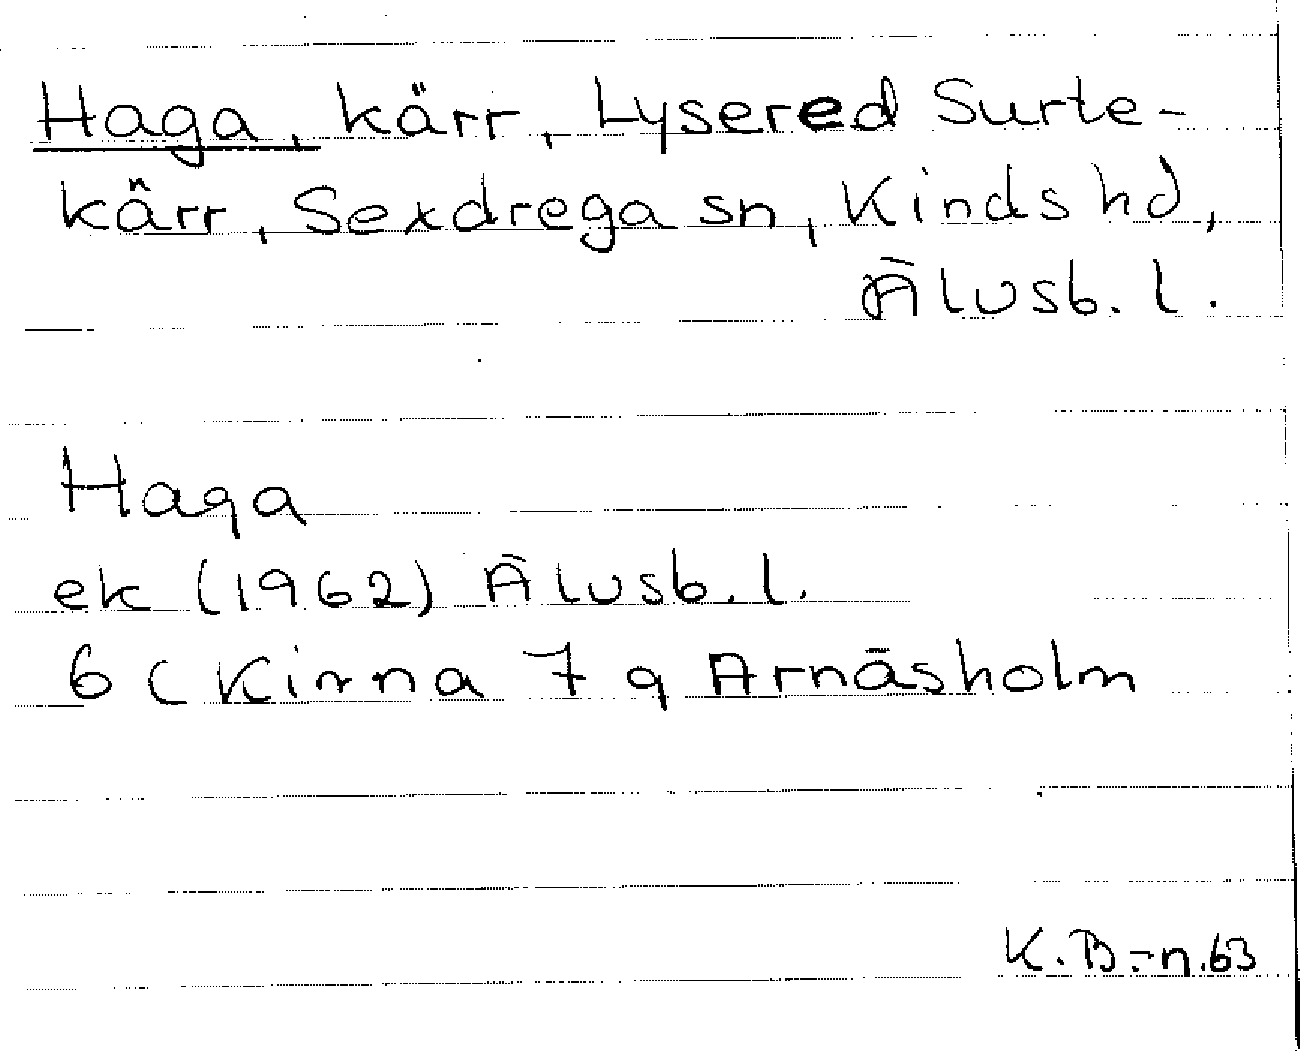 Haga, kärr, Lysered Surte-
kärr, Sexdrega sn, Kinds hd,
Älvsb. l.
Haga
ek (1962) Älvsb. l.
6 C Kinna 7 g Arnäsholm
K. B-n. 63